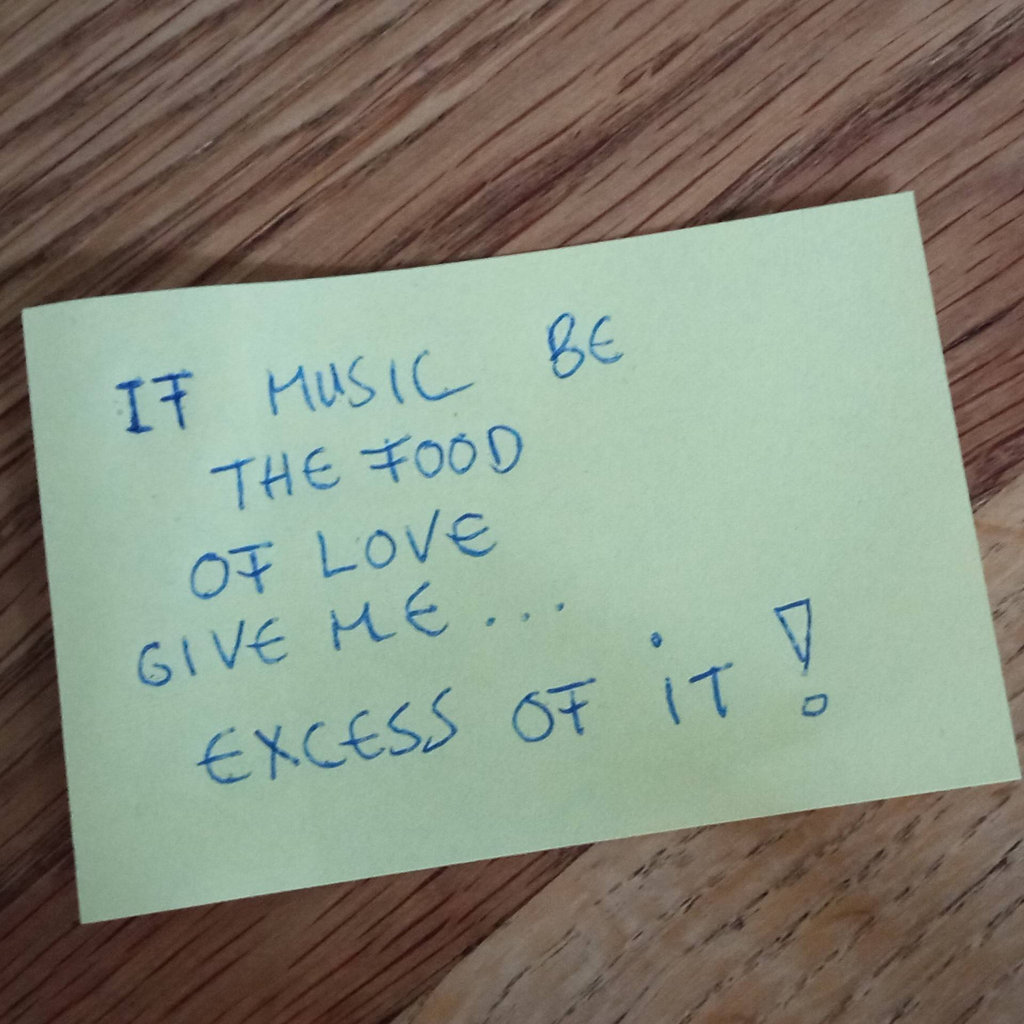 IF MUSIC BE
THE FOOD
OF LOVE
GIVE ME...
EXCESS OF iT!